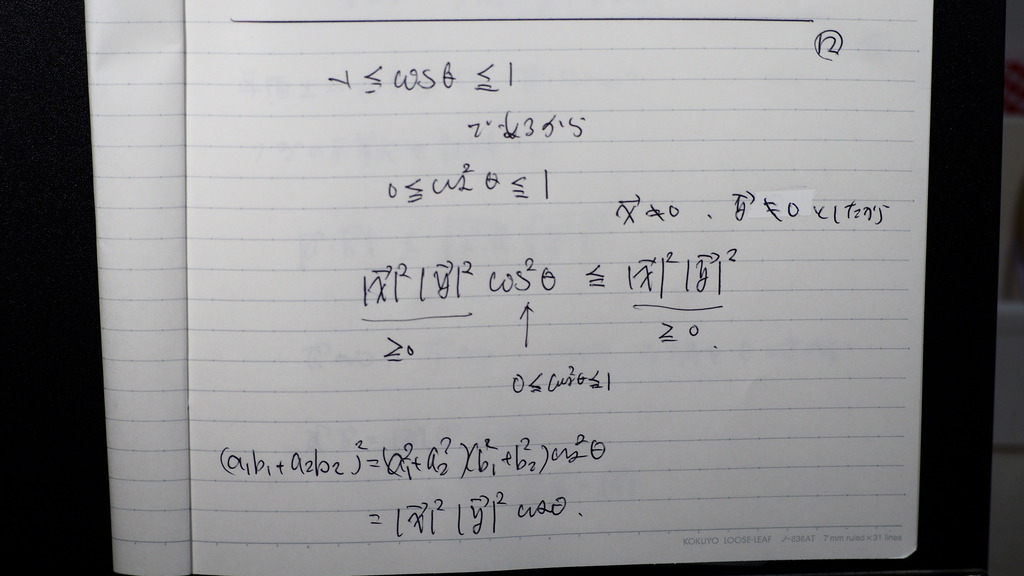 ⑫
-1 ≦ cosθ ≦ 1
であるから
0 ≦ cos²θ ≦ 1
x⃗ ≠ 0 . y⃗ ≠ 0 としたから
|x⃗|² |y⃗|² cos²θ ≦ |x⃗|² |y⃗|²
≧0 ↑ ≧ 0 .
0 ≦ cos²θ ≦ 1
(a₁b₁ + a₂b₂)² = (a₁² + a₂²)(b₁² + b₂²) cos²θ
= |x⃗|² |y⃗|² cos²θ.
KOKUYO LOOSE-LEAF ノ-836AT 7 mm ruled × 31 lines